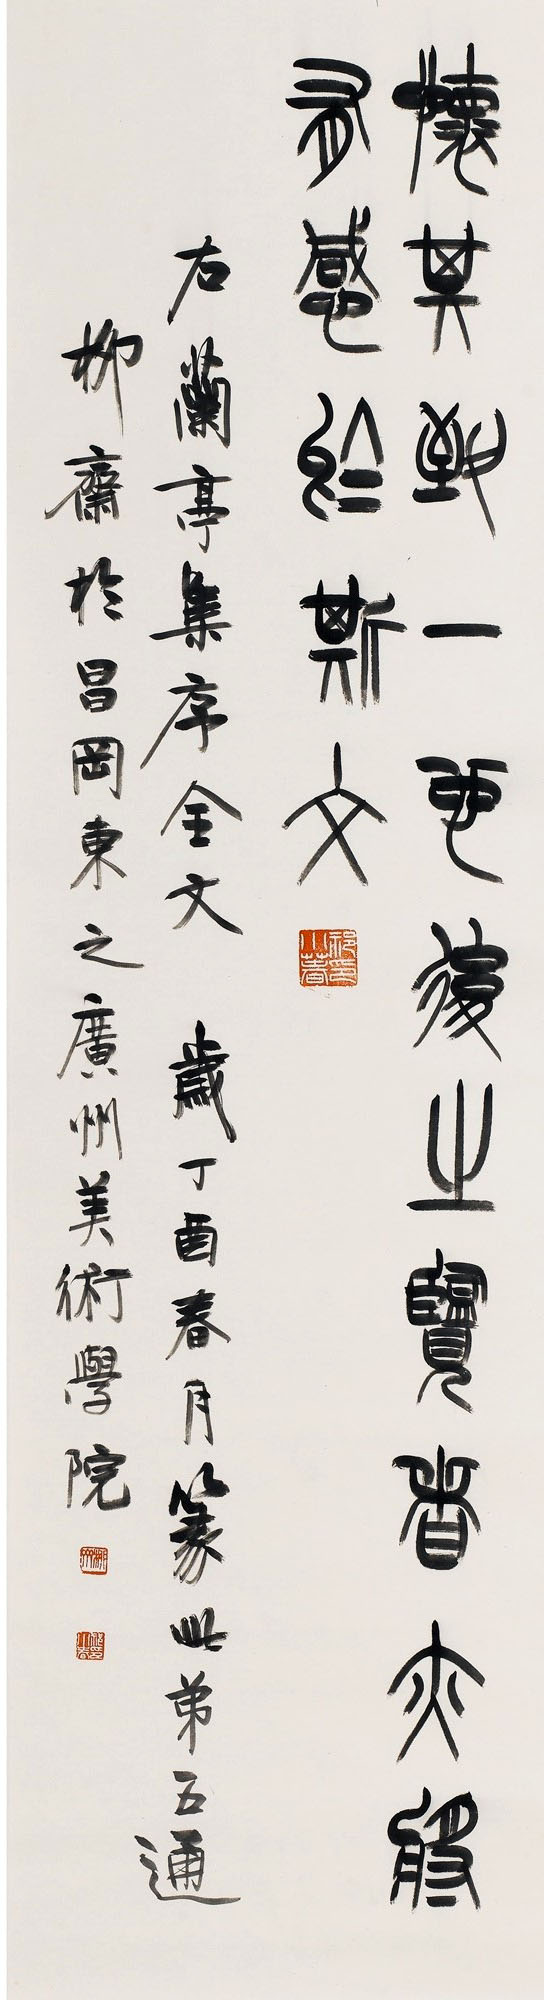 懷其致一也後之覽者亦將
有感於斯文
右蘭亭集序全文 歲丁酉春月篆此弟五通
柳齋於昌岡東之廣州美術學院